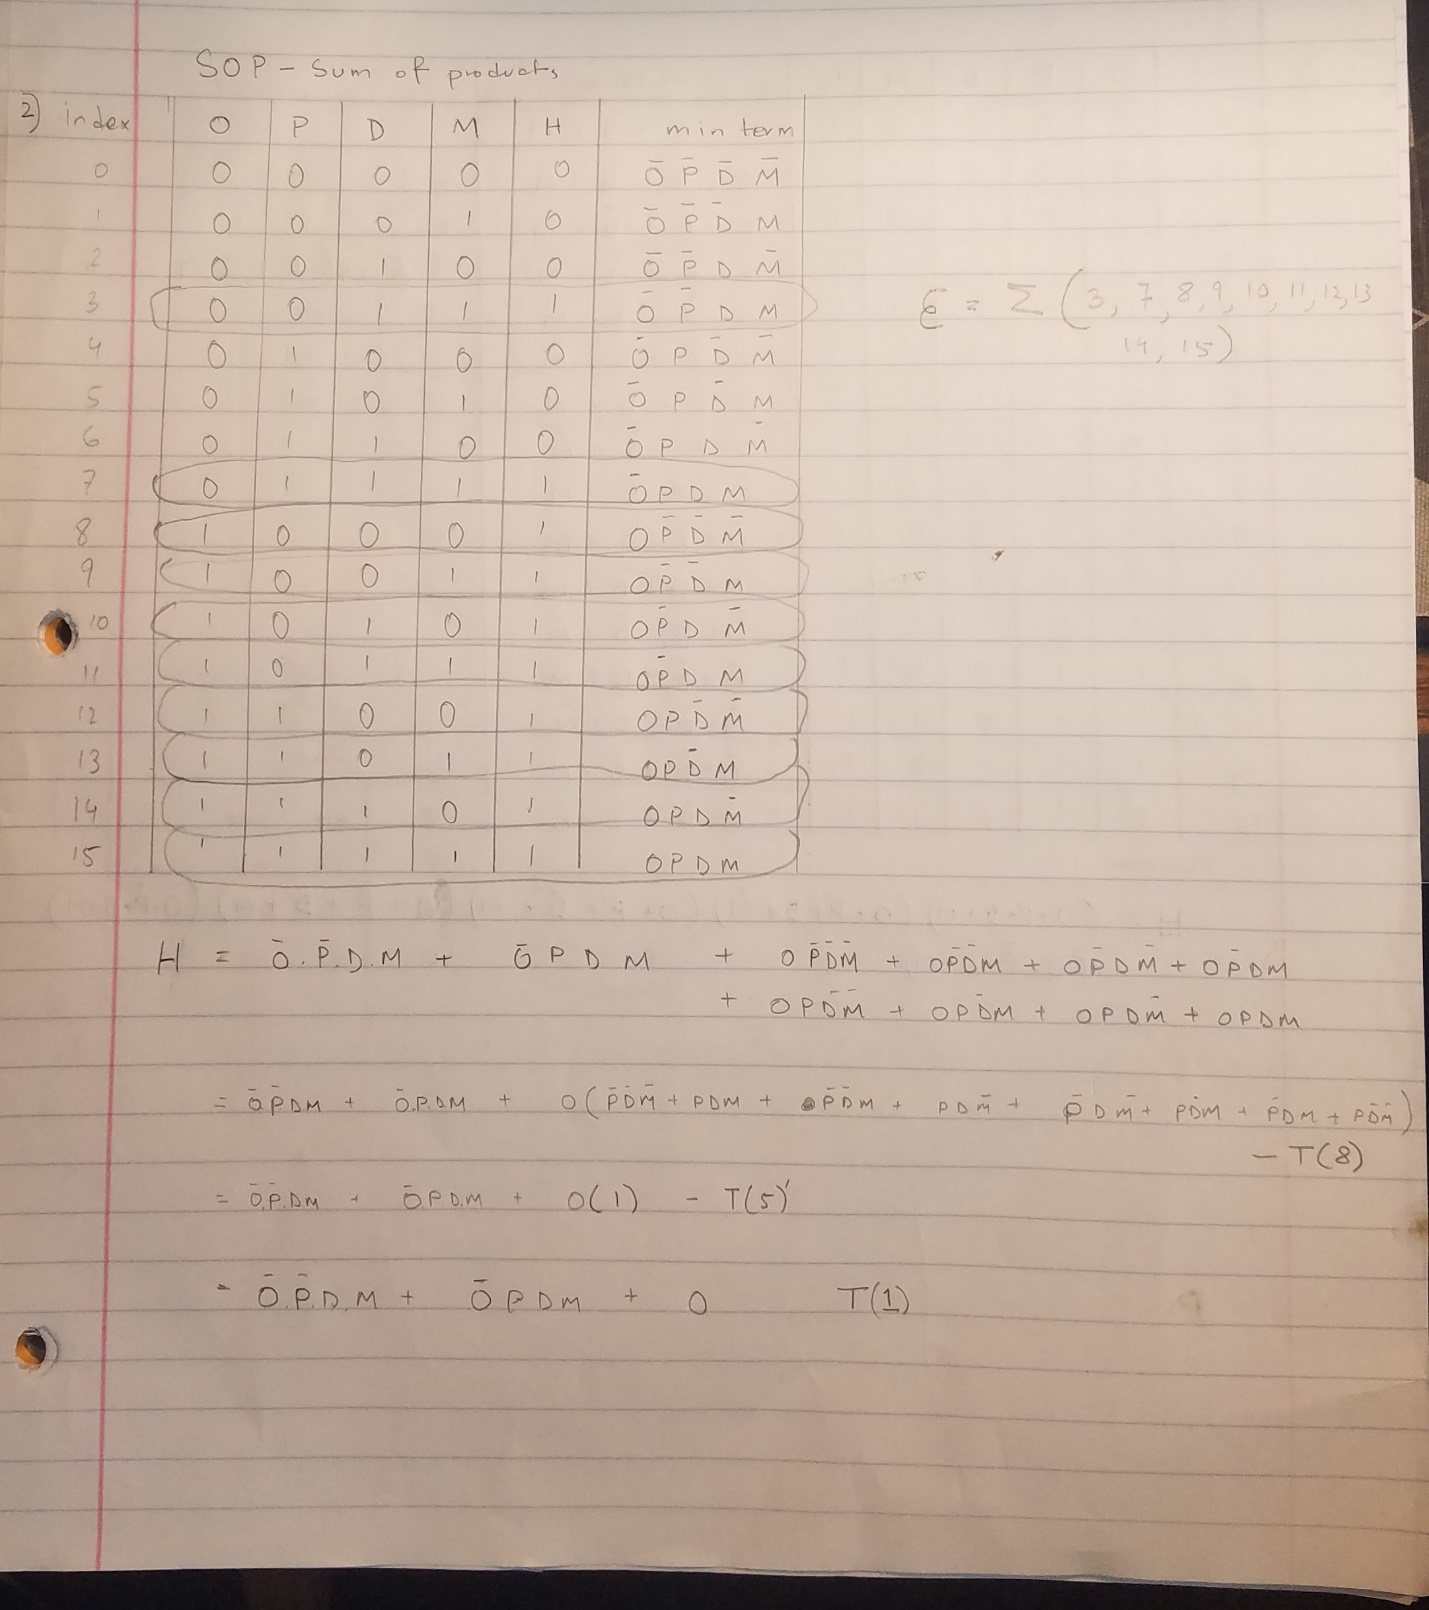 SOP - Sum of products
2) index O P D M H min term
0 0 0 0 0 0 Ō P̄ D̄ M̄
1 0 0 0 1 0 Ō P̄ D̄ M
2 0 0 1 0 0 Ō P̄ D M̄
3 0 0 1 1 1 Ō P̄ D M
ε = Σ (3, 7, 8, 9, 10, 11, 12, 13
14, 15)
4 0 1 0 0 0 Ō P D̄ M̄
5 0 1 0 1 0 Ō P D̄ M
6 0 1 1 0 0 Ō P D M̄
7 0 1 1 1 1 Ō P D M
8 1 0 0 0 1 O P̄ D̄ M̄
9 1 0 0 1 1 O P̄ D̄ M
10 1 0 1 0 1 O P̄ D M̄
11 1 0 1 1 1 O P̄ D M
12 1 1 0 0 1 O P D̄ M̄
13 1 1 0 1 1 O P D̄ M
14 1 1 1 0 1 O P D M̄
15 1 1 1 1 1 O P D M
H = Ō.P̄.D.M + Ō P D M + O P̄D̄M̄ + OP̄D̄M + OP̄DM̄ + OP̄DM
+ OPD̄M̄ + OPD̄M + OPDM̄ + OPDM
= ŌP̄DM + ŌP.DM + O(P̄D̄M̄ + PDM + P̄D̄M + PDM̄ + P̄DM̄ + PD̄M + P̄DM + PD̄M̄)
- T(8)
= Ō.P̄.DM + ŌPD.M + O(1) - T(5)'
= Ō.P̄.D.M + Ō P D M + O T(1)